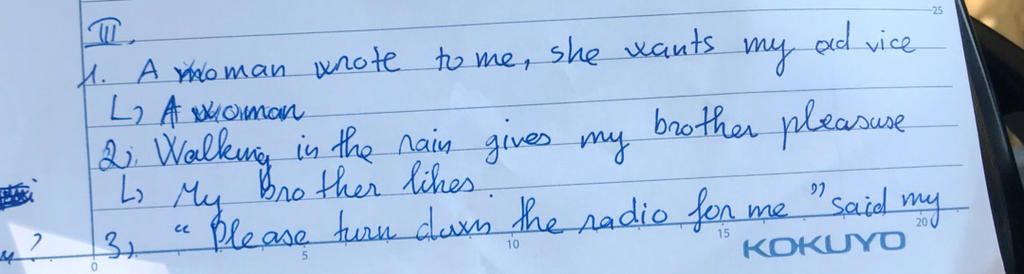 25
III.
1. A woman wrote to me, she wants my ad vice
L) A woman
2). Walking in the rain gives my brother pleasuse
L) My Bro ther likes.
3, " Please turn down the radio for me " said my
?
0 5 10 15 20
KOKUYO